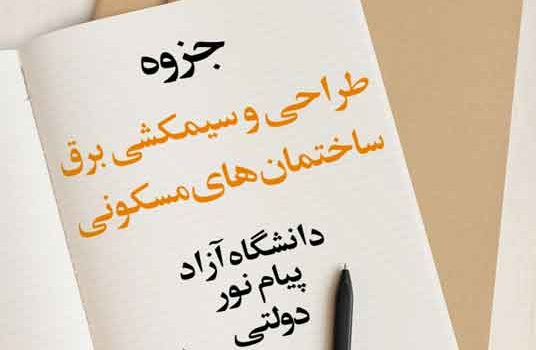 جزوه
طراحی و سیمکشی برق
ساختمان‌های مسکونی
دانشگاه آزاد
پیام نور
دولتی